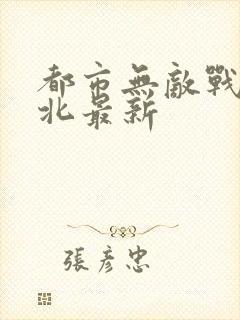 都市無敵戰
北最新
張彥忠